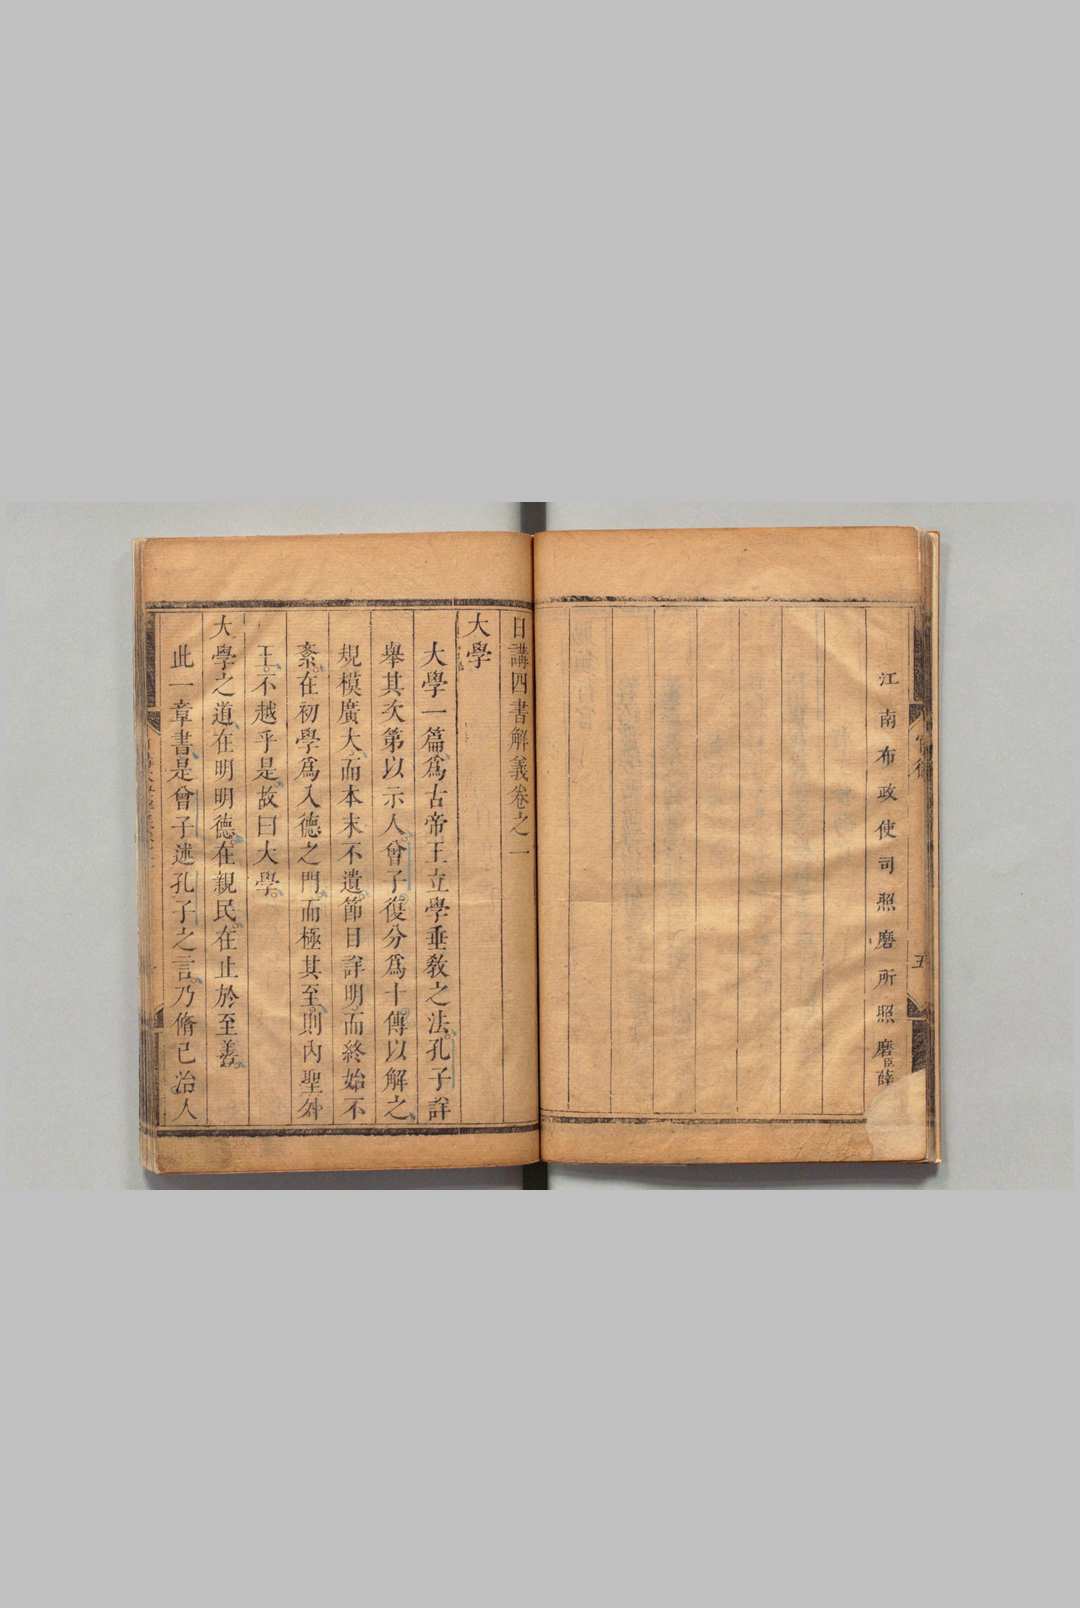 江南布政使司照磨所照磨臣薛
五
日講四書解義卷之一
大學
大學一篇爲古帝王立學垂教之法孔子詳
舉其次第以示人曾子復分爲十傳以解之
規模廣大而本末不遺節目詳明而終始不
紊在初學爲入德之門而極其至則內聖外
王不越乎是故曰大學
大學之道在明明德在親民在止於至善
此一章書是曾子述孔子之言乃脩己治人